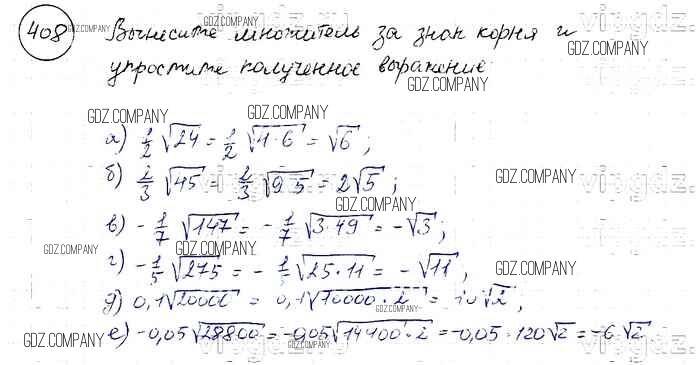 408 Вынесите множитель за знак корня и
упростите полученное выражение:
а) 1/2 √24 = 1/2 √4·6 = √6;
б) 2/3 √45 = 2/3 √9·5 = 2√5;
в) -1/7 √147 = -1/7 √3·49 = -√3;
г) -1/5 √275 = -1/5 √25·11 = -√11;
д) 0,1√20000 = 0,1√10000·2 = 10√2;
е) -0,05√28800 = -0,05√14400·2 = -0,05·120√2 = -6√2
GDZ.COMPANY
GDZ.COMPANY
GDZ.COMPANY
GDZ.COMPANY
GDZ.COMPANY
GDZ.COMPANY
GDZ.COMPANY
GDZ.COMPANY
GDZ.COMPANY
GDZ.COMPANY
GDZ.COMPANY
GDZ.COMPANY
GDZ.COMPANY
GDZ.COMPANY